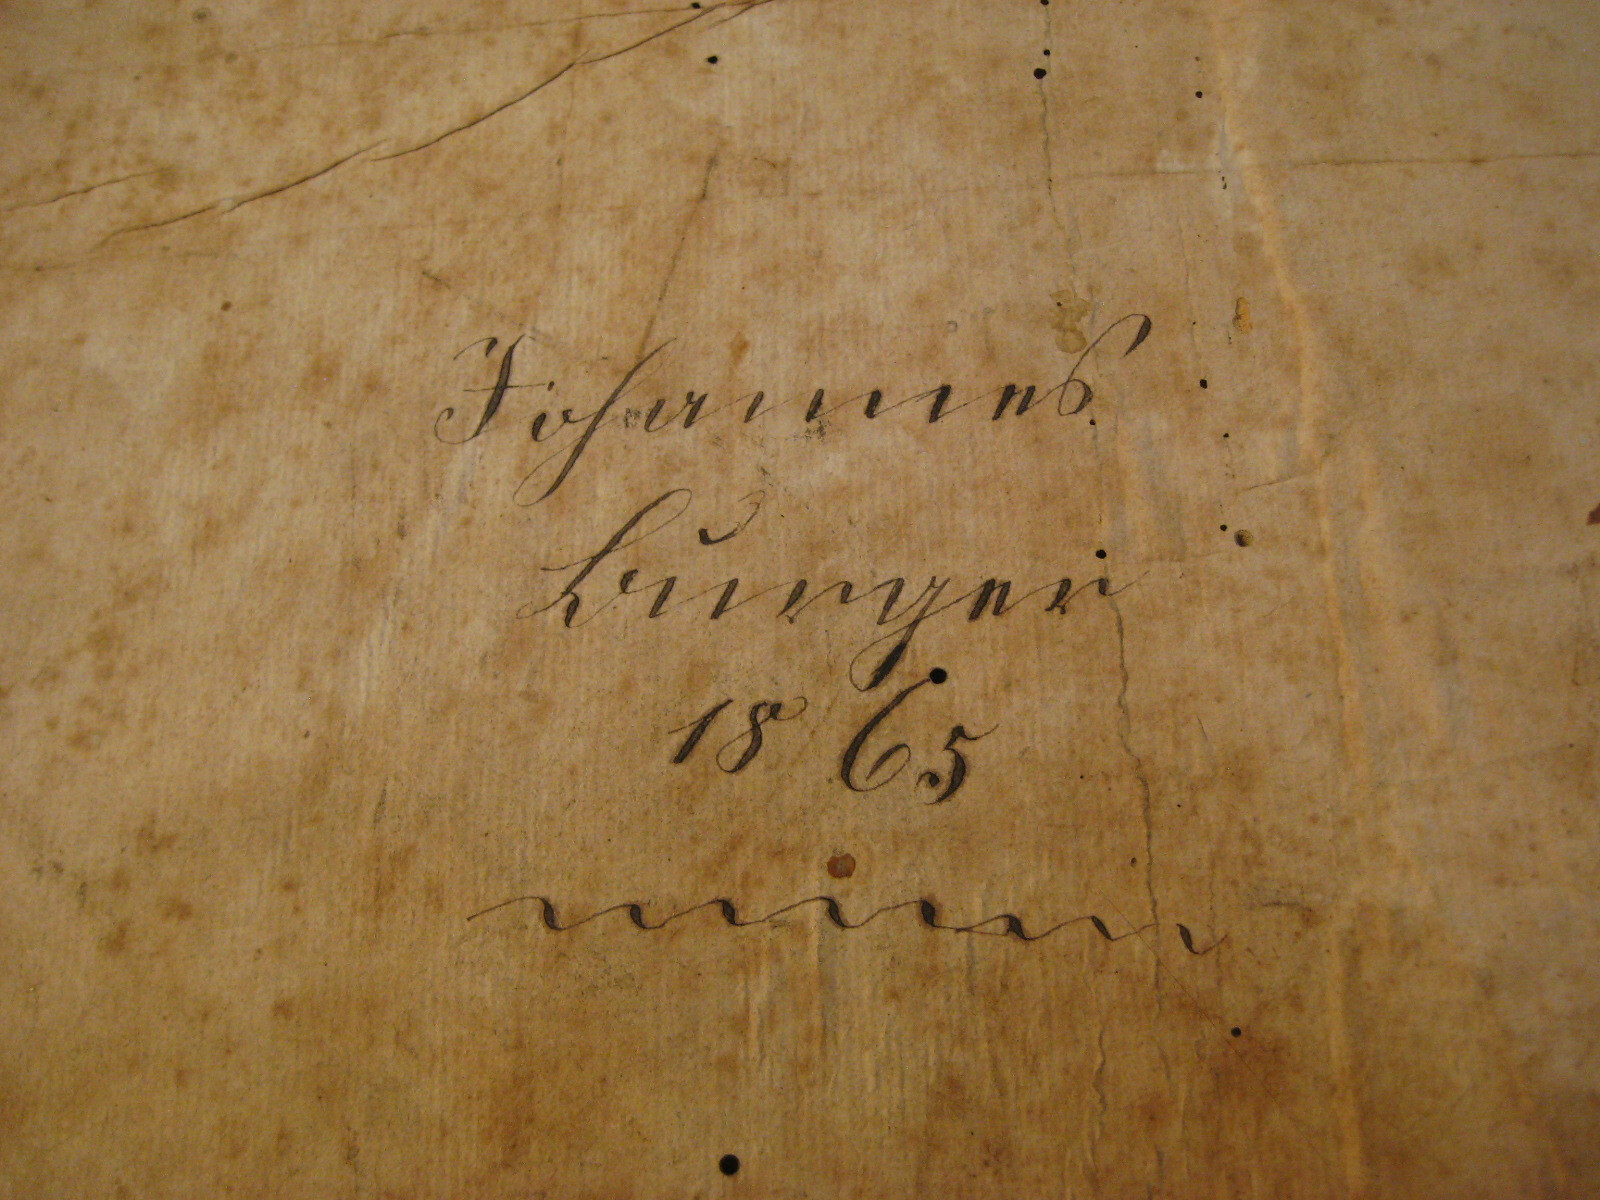 Johannes
Burger
1865